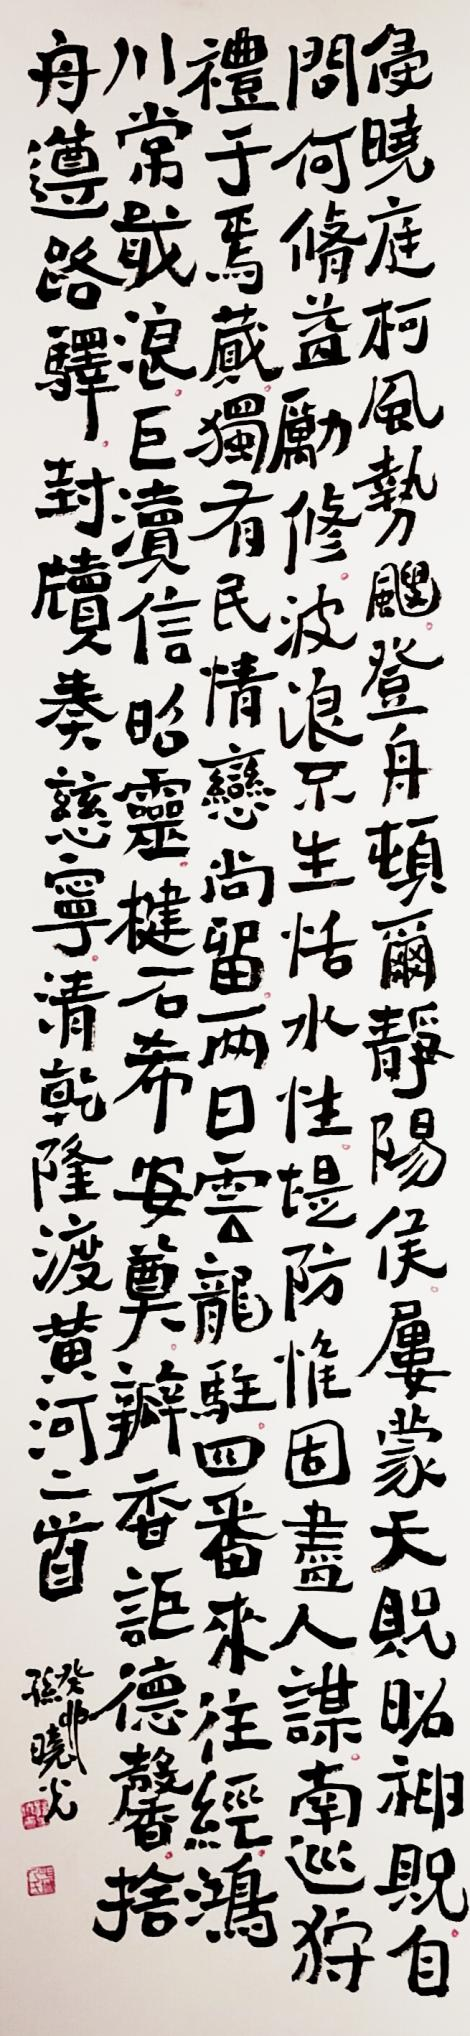 侵曉庭柯風勢颼登舟頓爾靜陽侯屢蒙天貺昭神貺自
問何脩益勵修波浪不生恬水性堤防惟固盡人謀南巡狩
禮于焉蕆獨有民情戀尚留兩日雲龍駐四番來往經鴻
川常戢浪巨瀆信昭靈楗石希安奠瓣香詎德馨捨
舟遵路驛封牘奏慈寧清乾隆渡黄河二首
癸卯
孫曉光